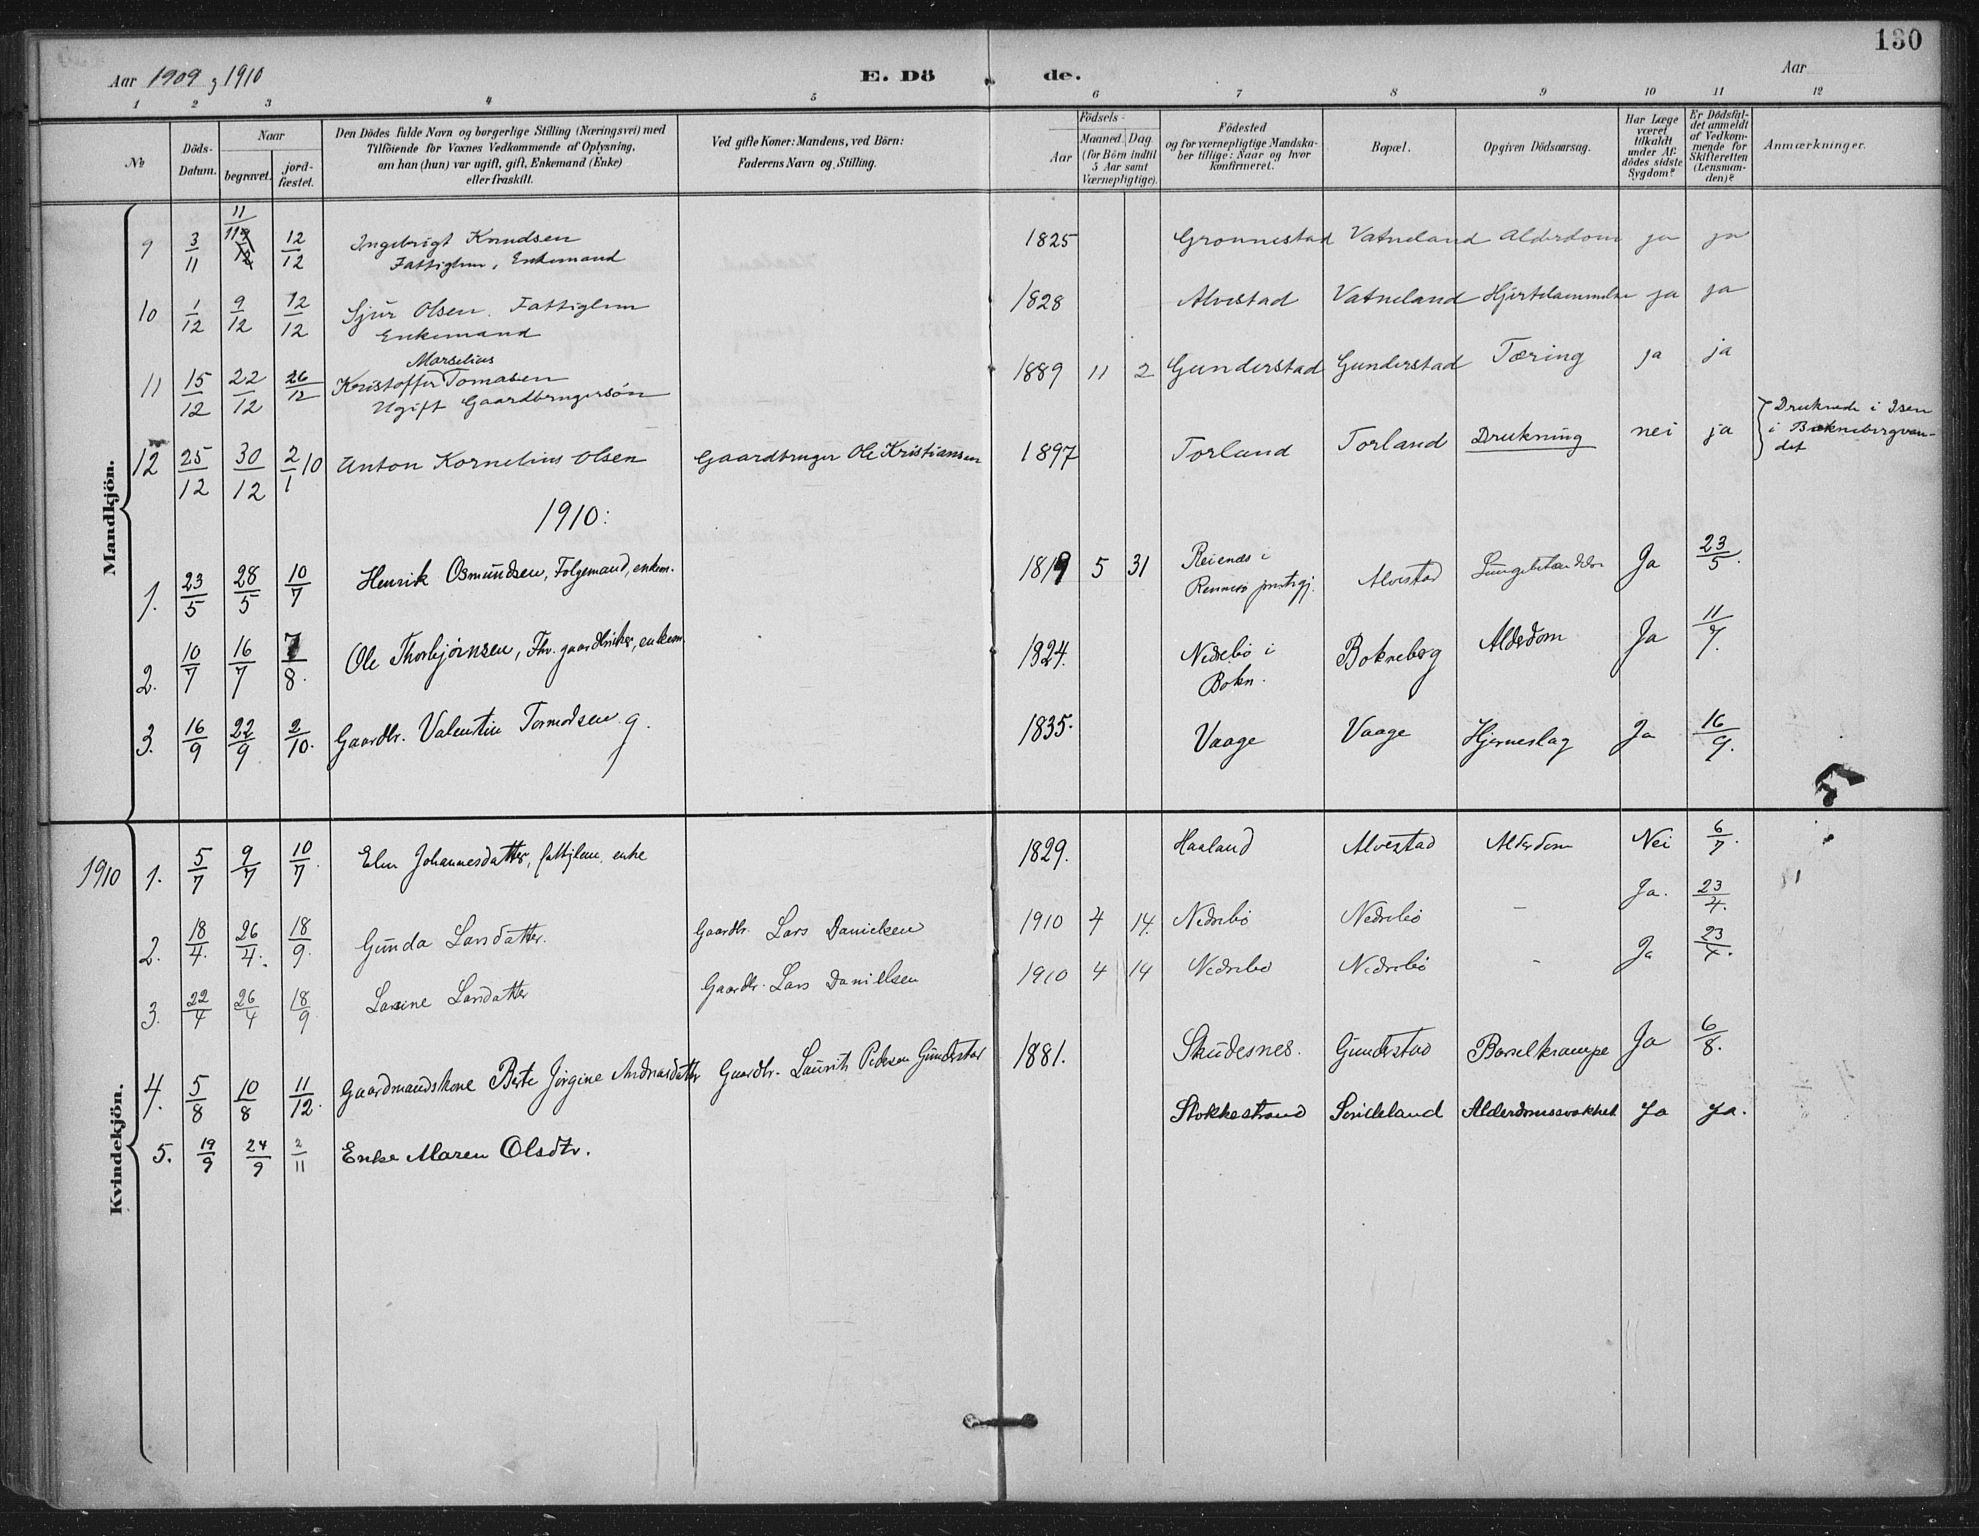 130
Aar 1909 , 1910 E. Dö de. Aar
1 2 3 4 5 6 7 8 9 10 11 12
No
Döds-Datum.
Naar
begravet.
jord-fæstet.
Den Dödes fulde Navn og borgerlige Stilling (Næringsvei) med
Tilföiende for Voxnes Vedkommende af Oplysning,
om han (hun) var ugift, gift, Enkemand (Enke)
eller fraskilt.
Ved gifte Koner: Mandens, ved Börn:
Faderens Navn og Stilling.
Födsels-
Aar
Maaned. Dag.
(for Börn indtil
5 Aar samt
Værnepligtige).
Födested
og for værnepligtige Mandska-
ber tillige: Naar og hvor
konfirmeret.
Bopæl.
Opgiven Dödsaarsag.
Har Læge
været
tilkaldt
under Af-
dödes sidste
Sygdom?
Er Dödsfal-
det anmeldt
af Vedkom-
mende for
Skifteretten
(Lensman-
den)?
Anmærkninger.
Mandkjön.
9 3/11 11 12/12 Ingebrigt Knudsen 1825 Gronnestad Vatneland Alderdom ja ja
Fattiglem, Enkemand
10 1/12 9/12 12/12 Sjur Olsen. Fattiglem 1828 Alvestad Vatneland Hjertelammelse ja ja
Enkemand
Marselius
11 15/12 22/12 26/12 Kristoffer Tomasen 1889 11 2 Gunderstad Gunderstad Tæring ja ja
Ugift Gaardbrugersøn
12 25/12 30/12 2/1 10 Anton Kornelius Olsen Gaardbruger Ole Kristiansen 1897 Torland Torland Drukning nei ja Druknede i Isen
i Boknebergvan-
det
1910:
1. 23/5 28/5 10/7 Henrik Osmundsen, Folgemand, enkem. 1819 5 31 Reienes i
Rennesø prstgj. Alvestad Ja 23/5.
2. 10/7 16/7 7/8. Ole Thorbjørnsen, Fhv. gaardbruker, enkem. 1824. Nedrebø i
Bokn. Bokneberg Alderdom Ja 11/7.
3. 16/9 22/9 2/10. Gaardbr. Valentin Tormodsen g. 1835. Vaage Vaage Hjerneslag Ja 16/9.
Kvindekjön.
1910 1. 5/7 9/7 10/7. Elen Johannesdatter, fattiglem, enke 1829. Haaland Alvestad Alderdom Nei 6/7.
2. 18/4. 26/4. 18/9. Gunda Larsdatter. Gaardbr. Lars Danielsen 1910 4 14. Nedrebø Nedrebø - Ja. 23/4.
3. 22/4 26/4 18/9. Larsine Larsdatter Gaardbr. Lars Danielsen 1910 4 14 Nedrebø Nedrebø - Ja 23/4.
4. 5/8 10/8 11/12. Gaardmandskone Berte Jørgine Andreasdatter Gaardbr. Laurits Pedersen Gunderstad 1881. Skudesnes. Gunderstad Barselkrampe Ja 6/8.
5. 19/9 24/9 2/11 Enke Maren Olsdtr. Stokkestrand Sørideland Alderdomssvakhet Ja Ja.